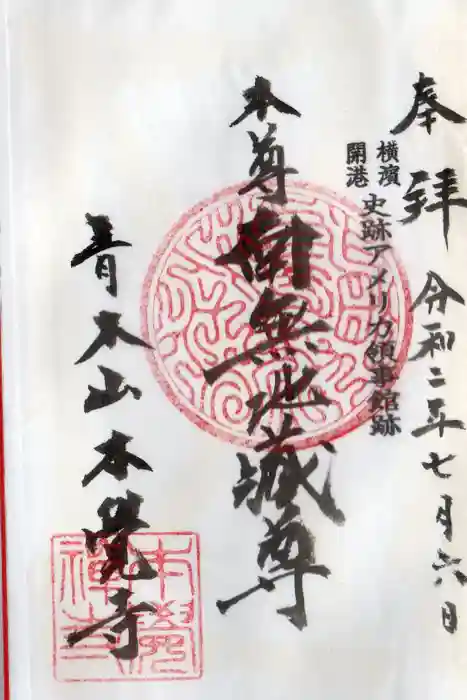 奉拝 令和二年七月六日
横濱
開港
史跡アメリカ領事館跡
本尊 南無地蔵尊
青木山本覺寺
本覺
禪寺